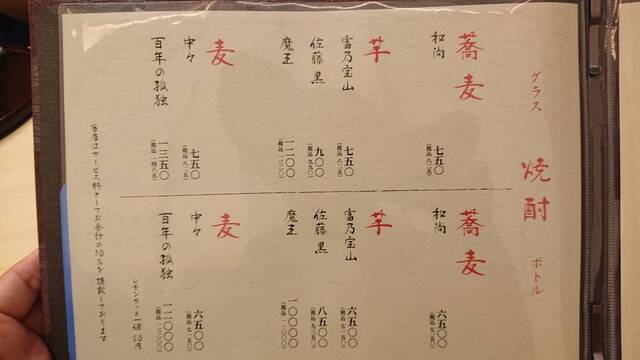 焼酎
グラス
蕎麦
和尚 七五〇
(税込 八二五)
芋
富乃宝山 七五〇
(税込 八二五)
佐藤黒 九〇〇
(税込 九九〇)
魔王 一二〇〇
(税込 一三二〇)
麦
中々 七五〇
(税込 八二五)
百年の孤独 一三五〇
(税込 一四八五)
ボトル
蕎麦
和尚 六五〇〇
(税込 七一五〇)
芋
富乃宝山 六五〇〇
(税込 七一五〇)
佐藤黒 八五〇〇
(税込 九三五〇)
魔王 一〇〇〇〇
(税込 一一〇〇〇)
麦
中々 六五〇〇
(税込 七一五〇)
百年の孤独 一二〇〇〇
(税込 一三二〇〇)
レモンカット一個50円
当店はサービス料としてお会計の10%を頂戴しております